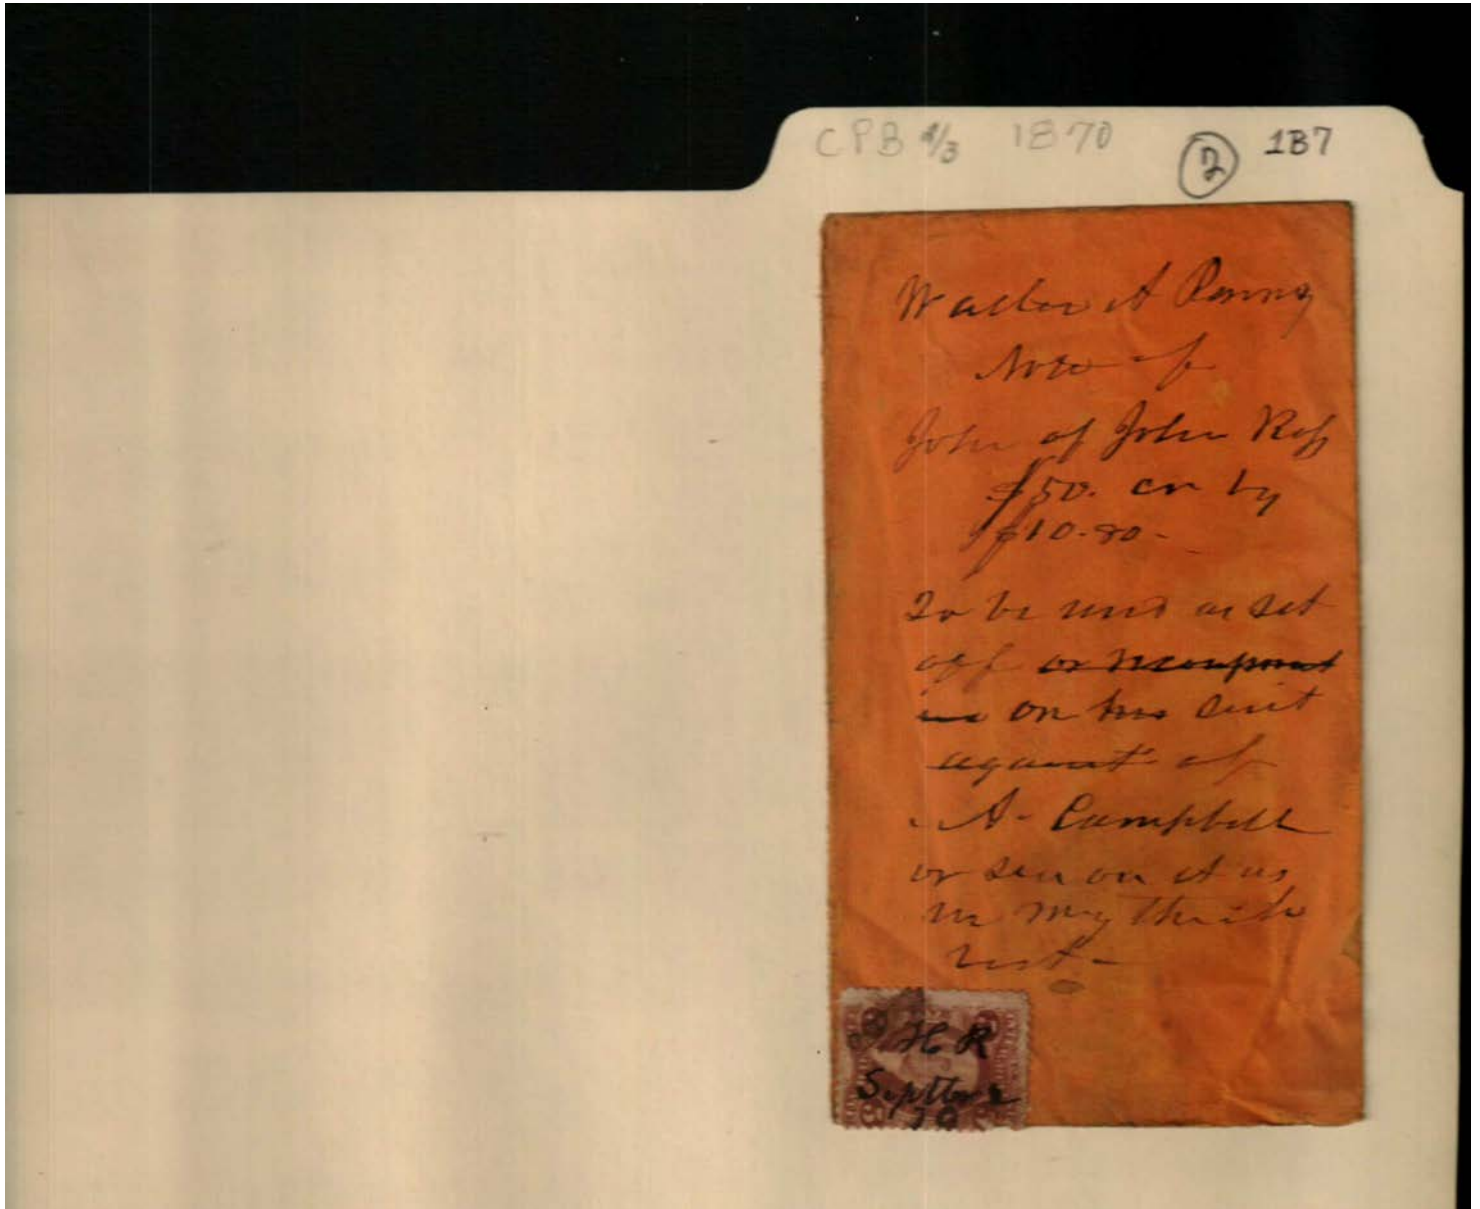 CPB 2/3 1870 (2) 1B7
Walter A Penny
Note of
John of John Ross
$50. cr by
$10.80-
To be used as set
off or recoupment
on his suit
against of
A. Campbell
or sue on it as
we may think
best-
H R
Septbr 2
70